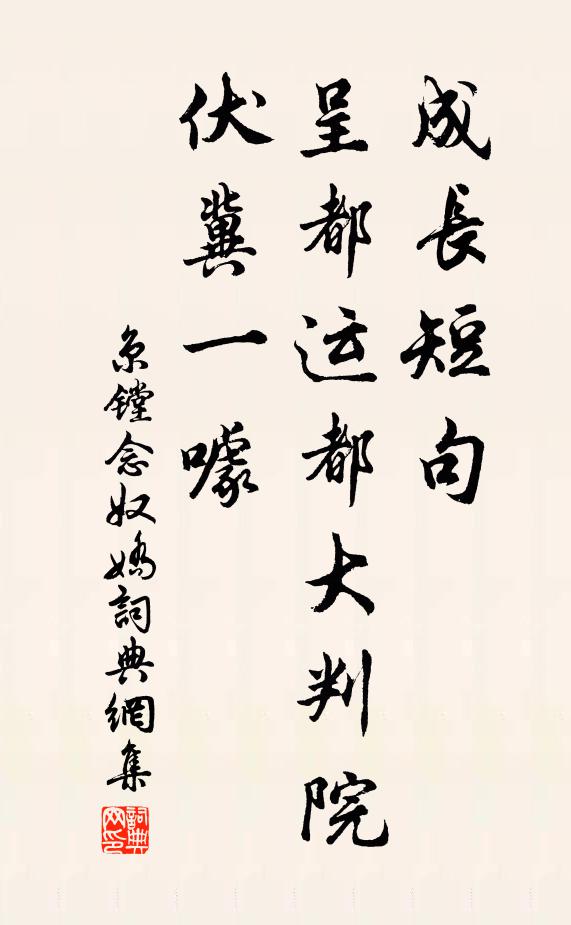 成長短句
呈都运都大判院
伏冀一噱
京镗念奴嬌詞典網集
詞典网印